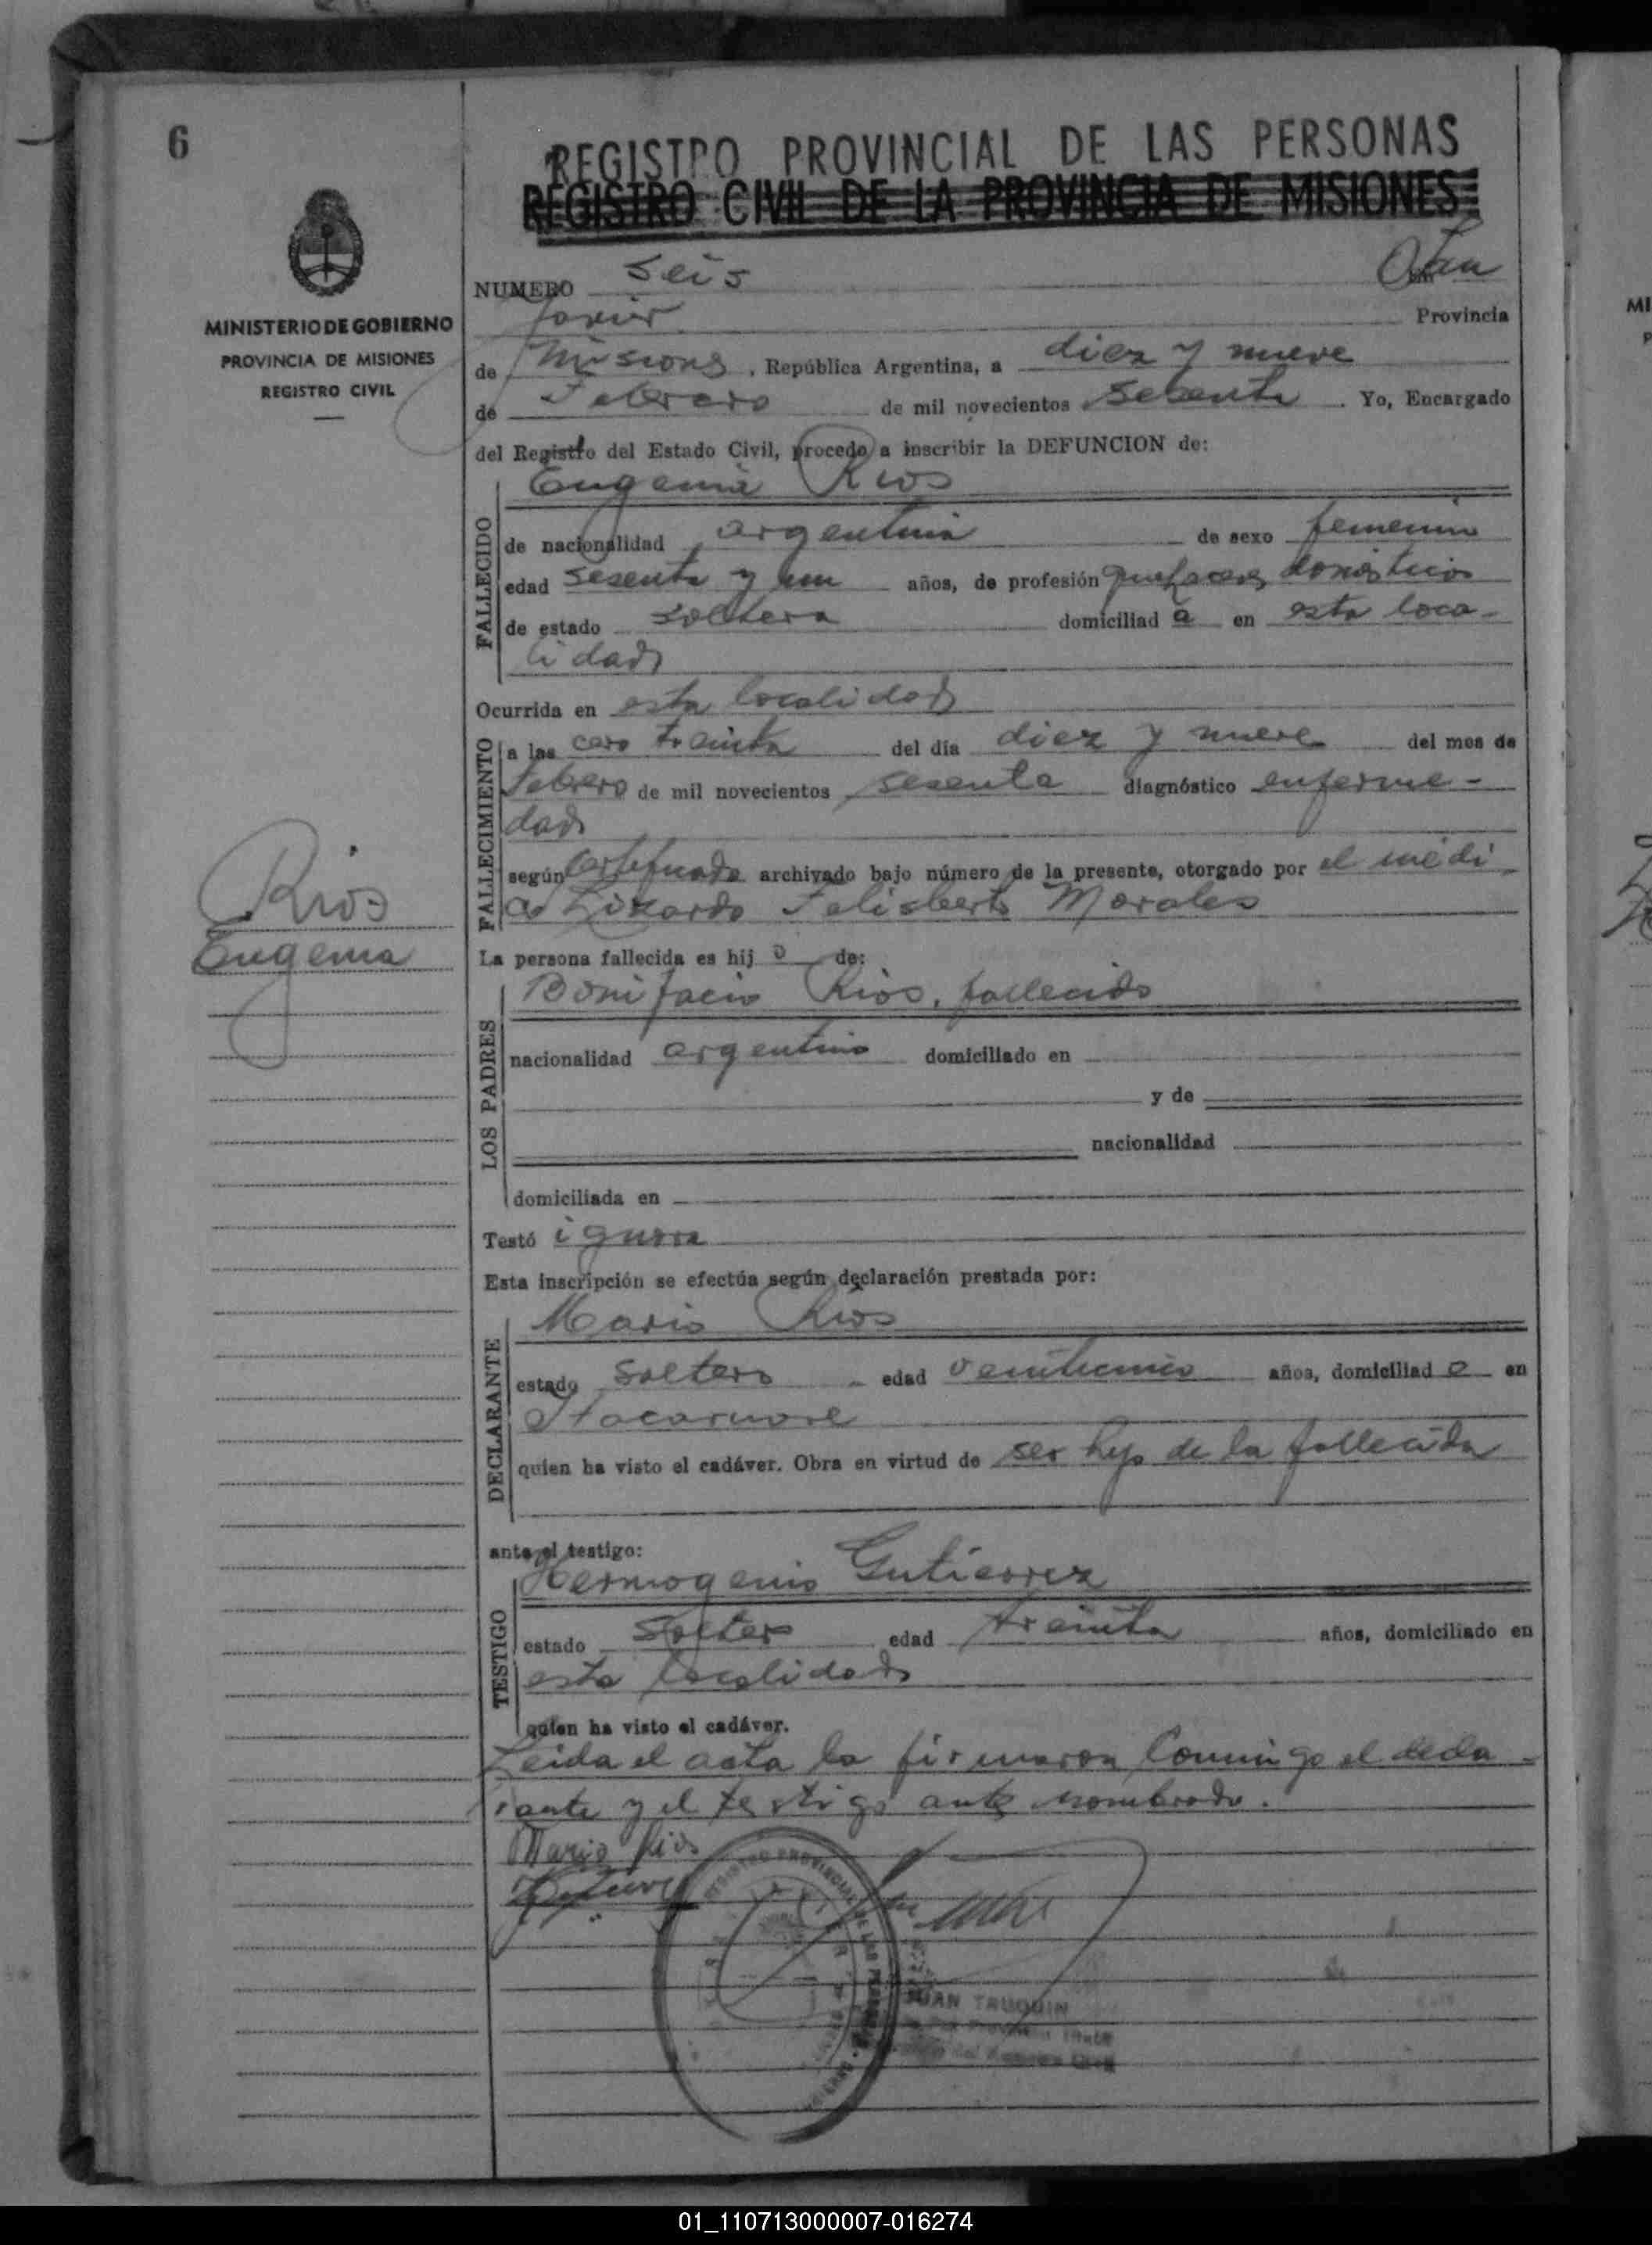 6
REGISTRO PROVINCIAL DE LAS PERSONAS
REGISTRO CIVIL DE LA PROVINCIA DE MISIONES
MINISTERIO DE GOBIERNO
PROVINCIA DE MISIONES
REGISTRO CIVIL
NUMERO Seis San
Javier Provincia
de Misiones, República Argentina, a diez y nueve
de Febrero de mil novecientos sesenta. Yo, Encargado
del Registro del Estado Civil, procedo a inscribir la DEFUNCION de:
Eugenia Rios
FALLECIDO
de nacionalidad argentina de sexo femenino
edad sesenta y un años, de profesión quehaceres domésticos
de estado soltera domiciliad a en esta loca-
lidad
Ocurrida en esta localidad
FALLECIMIENTO
a las cero treinta del día diez y nueve del mes de
Febrero de mil novecientos sesenta diagnóstico enferme-
dad
según certificado archivado bajo número de la presente, otorgado por el médi
co Lizardo Felisberto Morales
Rios
Eugenia
La persona fallecida es hij o de:
LOS PADRES
Bonifacio Rios, fallecido
nacionalidad argentino domiciliado en
y de
nacionalidad
domiciliada en
Testó ignora
Esta inscripción se efectúa según declaración prestada por:
DECLARANTE
Mario Rios
estado soltero edad años, domiciliad o en
Itacaruaré
quien ha visto el cadáver. Obra en virtud de ser hijo de la fallecida
ante el testigo:
TESTIGO
Hermogenio Gutierrez
estado soltero edad treinta años, domiciliado en
esta localidad
quien ha visto el cadáver.
Leida el acta la firmaron conmigo el decla-
rante y el testigo ante nombrado.
Mario Rios
REGISTRO PROVINCIAL DE LAS PERSONAS
JUAN TRUQUIN
01_110713000007-016274